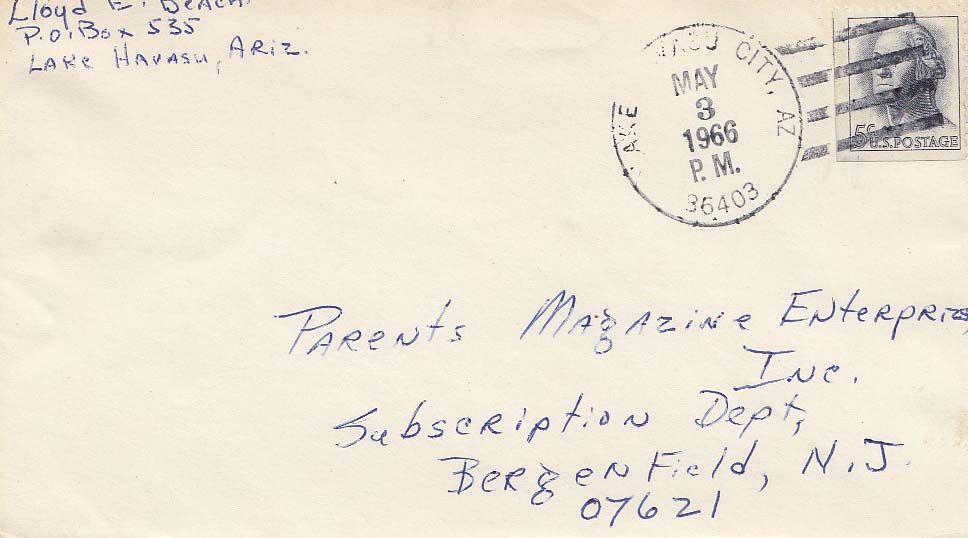 Lloyd E. Beach
P.O. Box 535
Lake Havasu, Ariz.
AKE VASU CITY, AZ
MAY
3
1966
P.M.
86403
5¢
U.S. POSTAGE
Parents Magazine Enterprises
Inc.
Subscription Dept,
Bergenfield, N.J.
07621